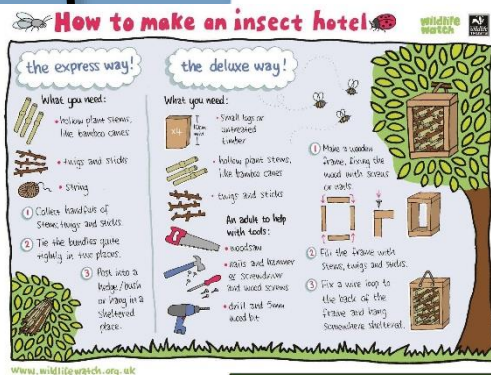 How to make an insect hotel
wildlife
watch
the express way!
What you need:
• hollow plant stems,
like bamboo canes
• twigs and sticks
• string
1 Collect handfuls of
stems, twigs and sticks.
2 Tie the bundles quite
tightly in two places.
3 Post into a
hedge/bush
or hang in a
sheltered
place.
the deluxe way!
What you need:
x4
10cm
min
• small logs or
untreated
timber
• hollow plant stems,
like bamboo canes
• twigs and sticks
An adult to help
with tools:
• woodsaw
• nails and hammer
or screwdriver
and wood screws
• drill and 5mm
wood bit
1 Make a wooden
frame, fixing the
wood with screws
or nails.
2 Fill the frame with
stems, twigs and sticks.
3 Fix a wire loop to
the back of the
frame and hang
somewhere sheltered.
www.wildlifewatch.org.uk